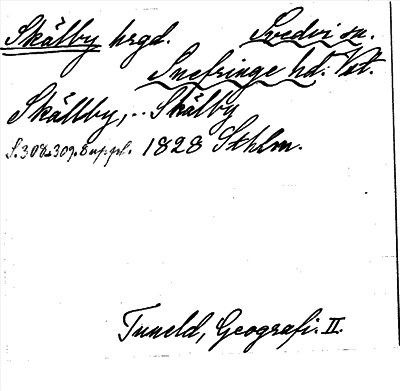 Skälby hrgd. Svedvi sn.
Snefringe hd. Vstm.
Skällby, .. Skälby
S. 308, 309. 8 uppl. 1828 Sthlm.
Tuneld, Geografi. II.